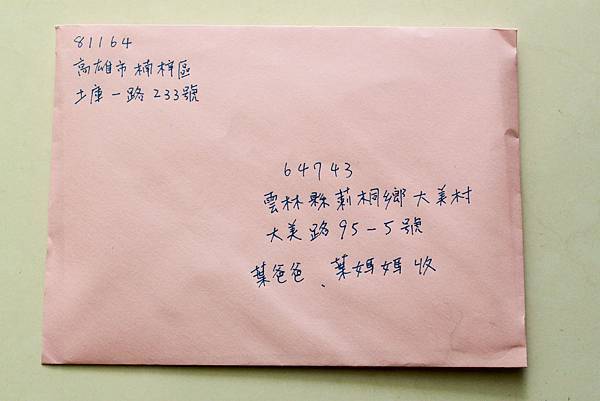 81164
高雄市楠梓區
土庫一路233號
64743
雲林縣莿桐鄉大美村
大美路95-5號
葉爸爸、葉媽媽收